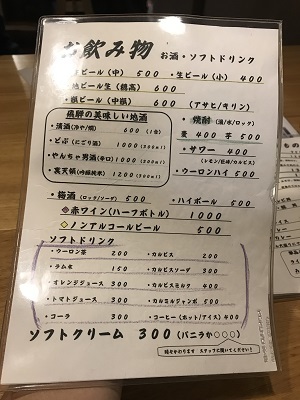 お飲み物 お酒・ソフトドリンク
ビール(中) 500 ・生ビール(小) 400
ビール生(穂高) 600
ビール(中瓶) 600 (アサヒ/キリン)
飛騨の美味しい地酒
・清酒(冷や/燗) 600(1合)
・どぶ(にごり酒) 1000(300ml)
・やんちゃ男酒(辛口) 1000(300ml)
・裏天領(吟醸純米) 1200(300ml)
・焼酎(湯/水/ロック)
麦 400 芋 500
・サワー 400
(レモン/巨峰/カルピス)
・ウーロンハイ 500
・梅酒(ロック/ソーダ) 500 ・ハイボール 500
赤ワイン(ハーフボトル) 1000
ノンアルコールビール 500
ソフトドリンク
・ウーロン茶 200 ・カルピス 200
・ラムネ 150 ・カルピスソーダ 300
・オレンジジュース 300 ・カルピスミルク 400
・トマトジュース 300 ・カルミルジャンボ 500
・コーラ 300 ・コーヒー(ホット/アイス) 400
ソフトクリーム 300 (バニラか○○○)
時々かわります スタッフに聞いてください!